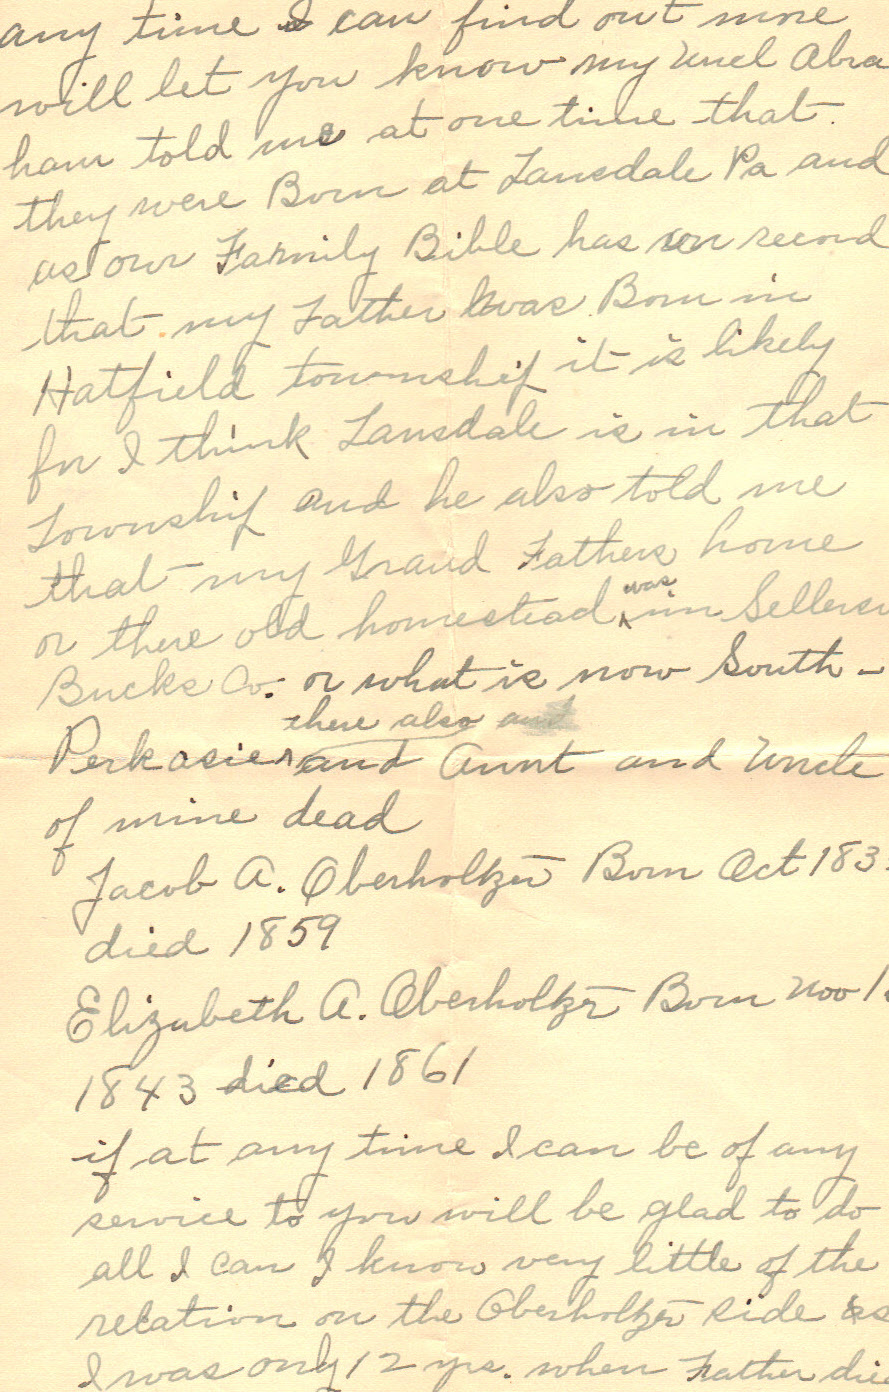 any time I can find out more
will let you know my Uncl Abra
ham told me at one time that
they were Born at Lansdale Pa and
as our Family Bible has on record
that my Father was Born in
Hatfield township it is likely
for I think Lansdale is in that
Township and he also told me
that my Grand Fathers home
or there old homestead was in Sellersv
Bucks Co. or what is now South-
there also and
Perkasie and Aunt and Uncle
of mine dead
Jacob A. Oberholtzer Born Oct 183
died 1859
Elizabeth A. Oberholtzer Born Nov 1
1843 died 1861
if at any time I can be of any
service to you will be glad to do
all I can I know very little of the
relation on the Oberholtzer side as
I was only 12 yrs. when Father die